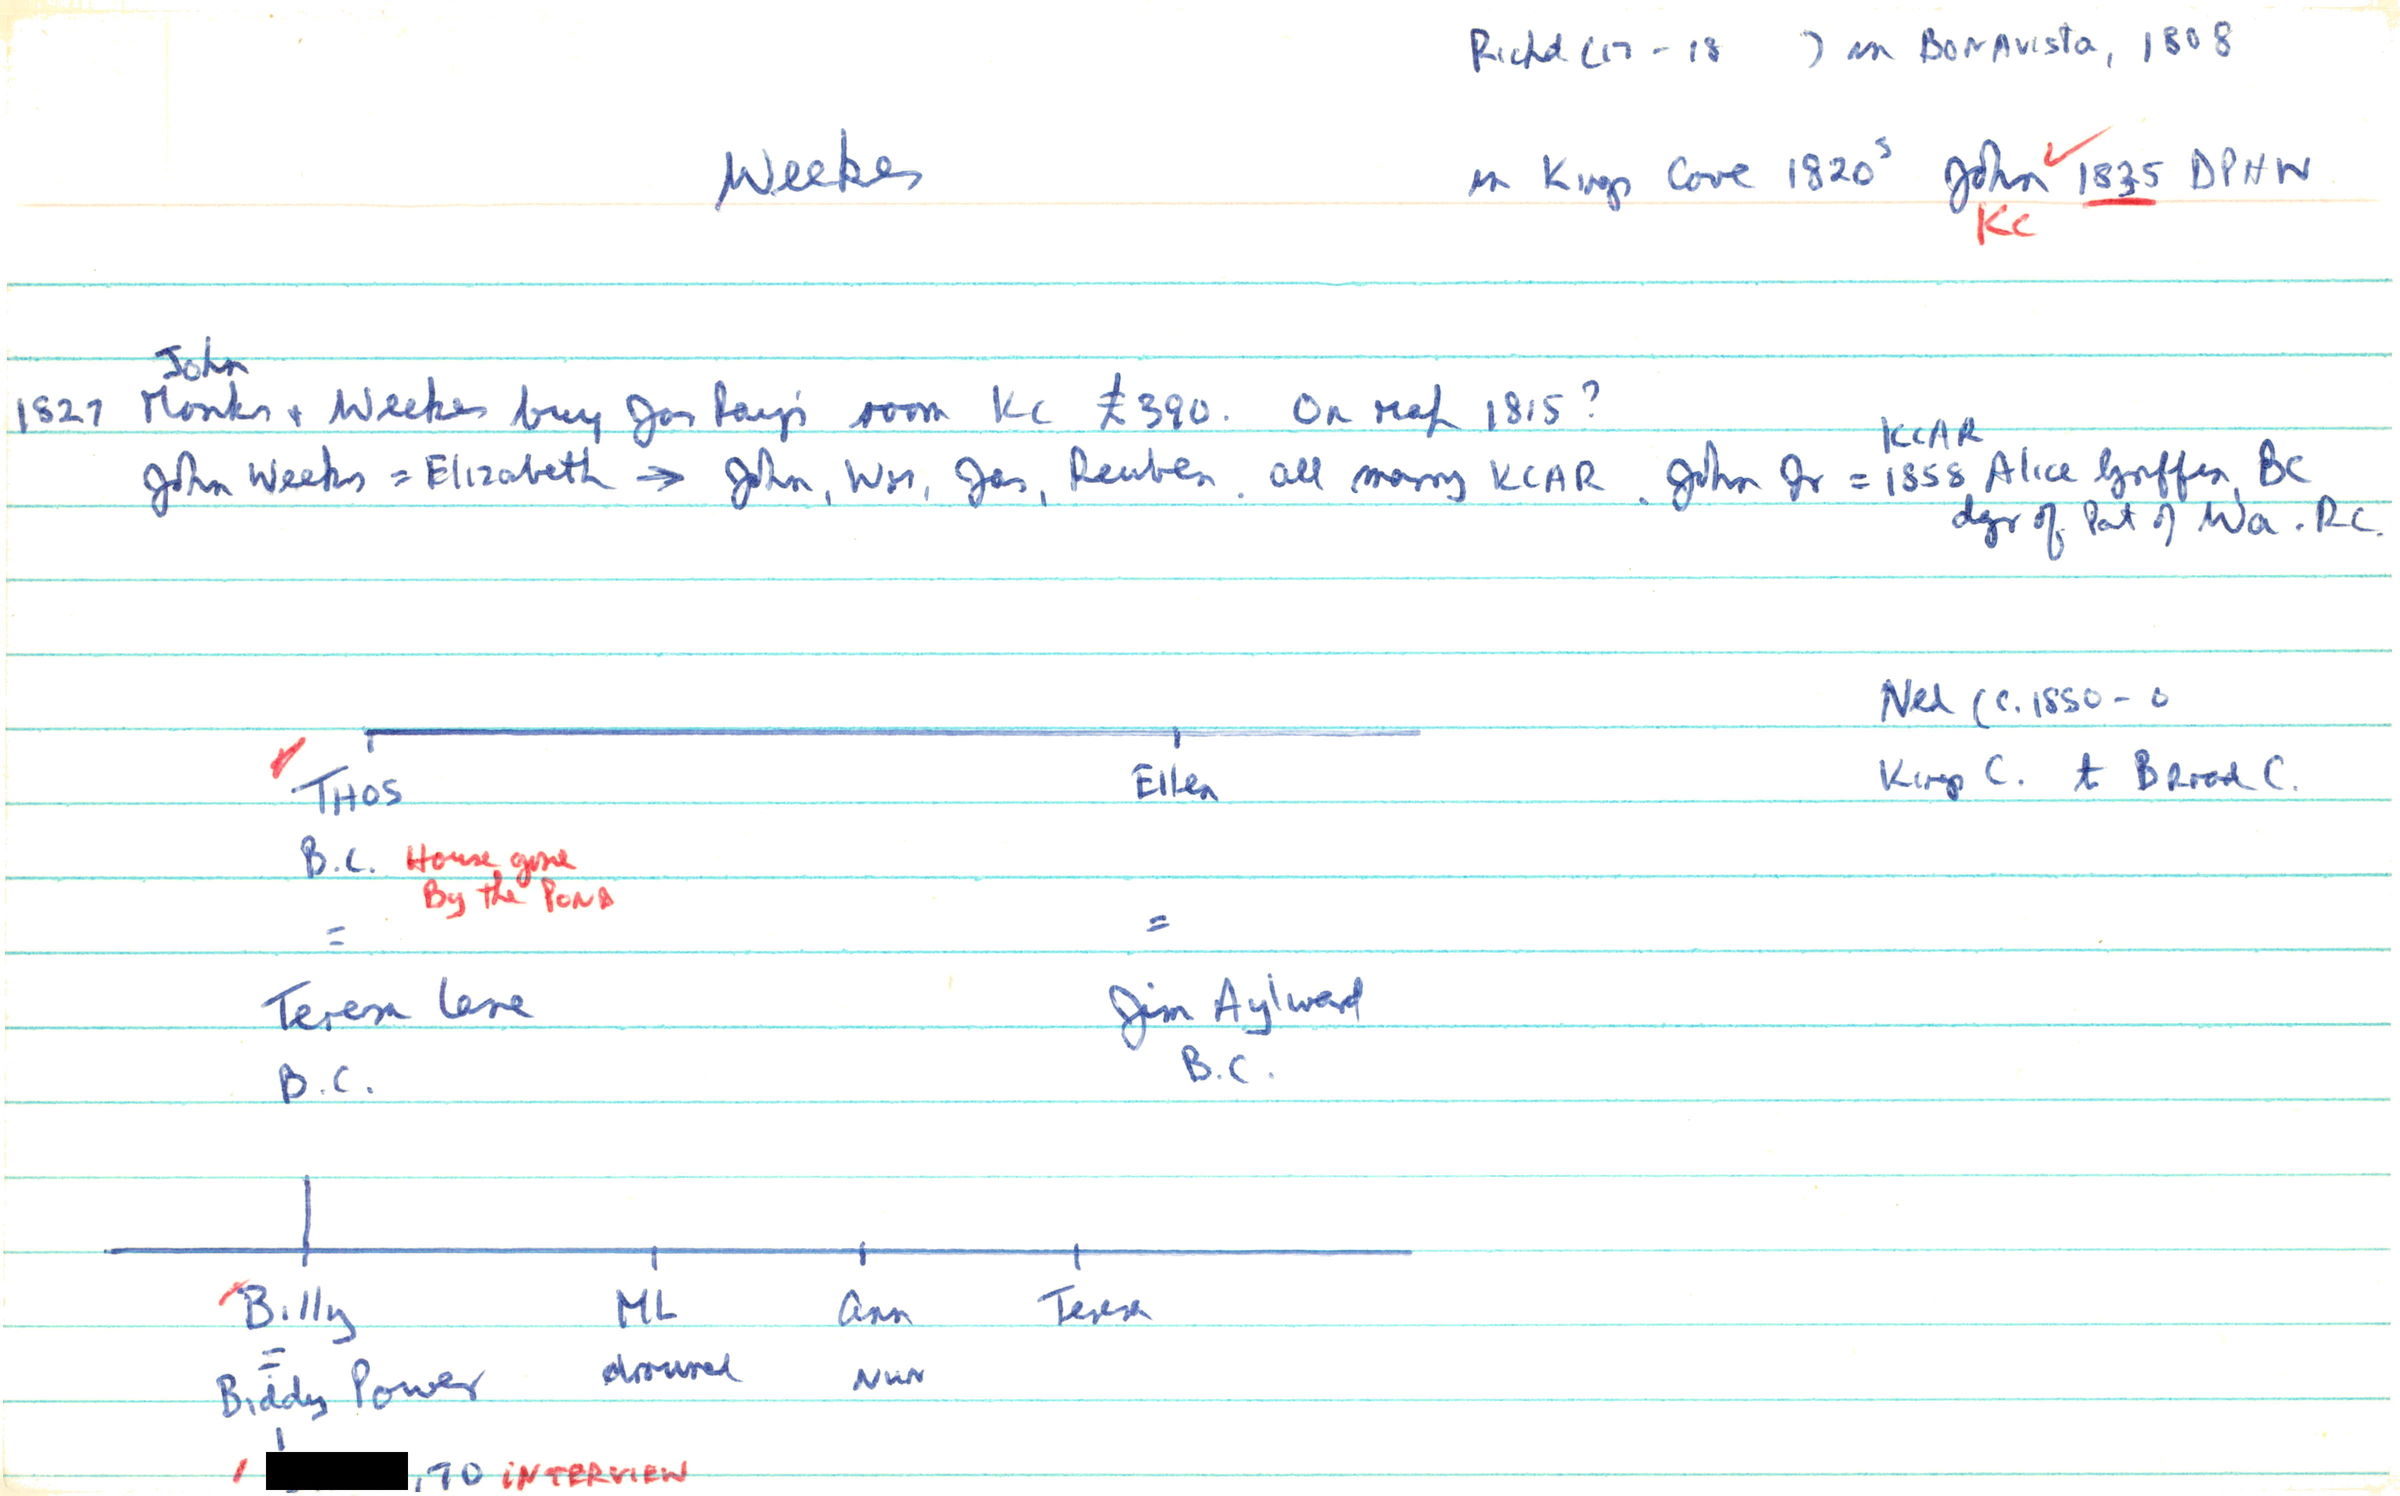 Richd (17 - 18 ) in Bonavista, 1808
Weekes
in Kings Cove 1820s John 1835 DPHW
KC
John
1827 Monks + Weekes buy Jas room KC £390. On map 1815?
KCAR
John Weeks = Elizabeth → John, Wm, Jas, Reuben. all marry KCAR. John Jr = 1858 Alice Griffen, BC
dgr of Pat of Wa. RC.
Ned (c. 1850 - 0
Kings C. to Broad C.
THOS Ellen
B.C. House gone
By the Pond
= =
Teresa Lane Jim Aylward
B.C. B.C.
Billy ML Ann Teresa
=
Biddy Power drowned Nun
, 70 INTERVIEW